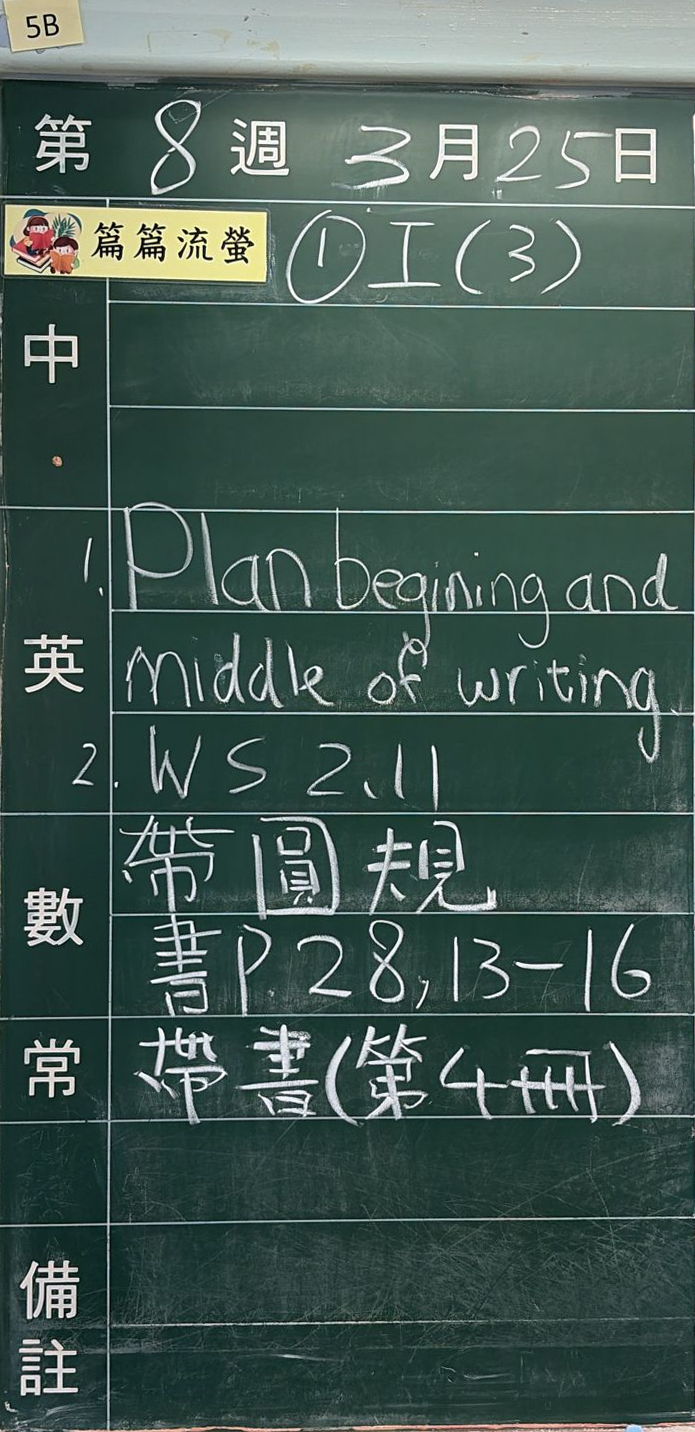 5B
第 8 週 3月25日
篇篇流螢 ①I(3)
中
1. Plan begining and
英 middle of writing.
2. WS 2.11
帶圓規
數 書P.28,13-16
常 帶書(第4冊)
備
註